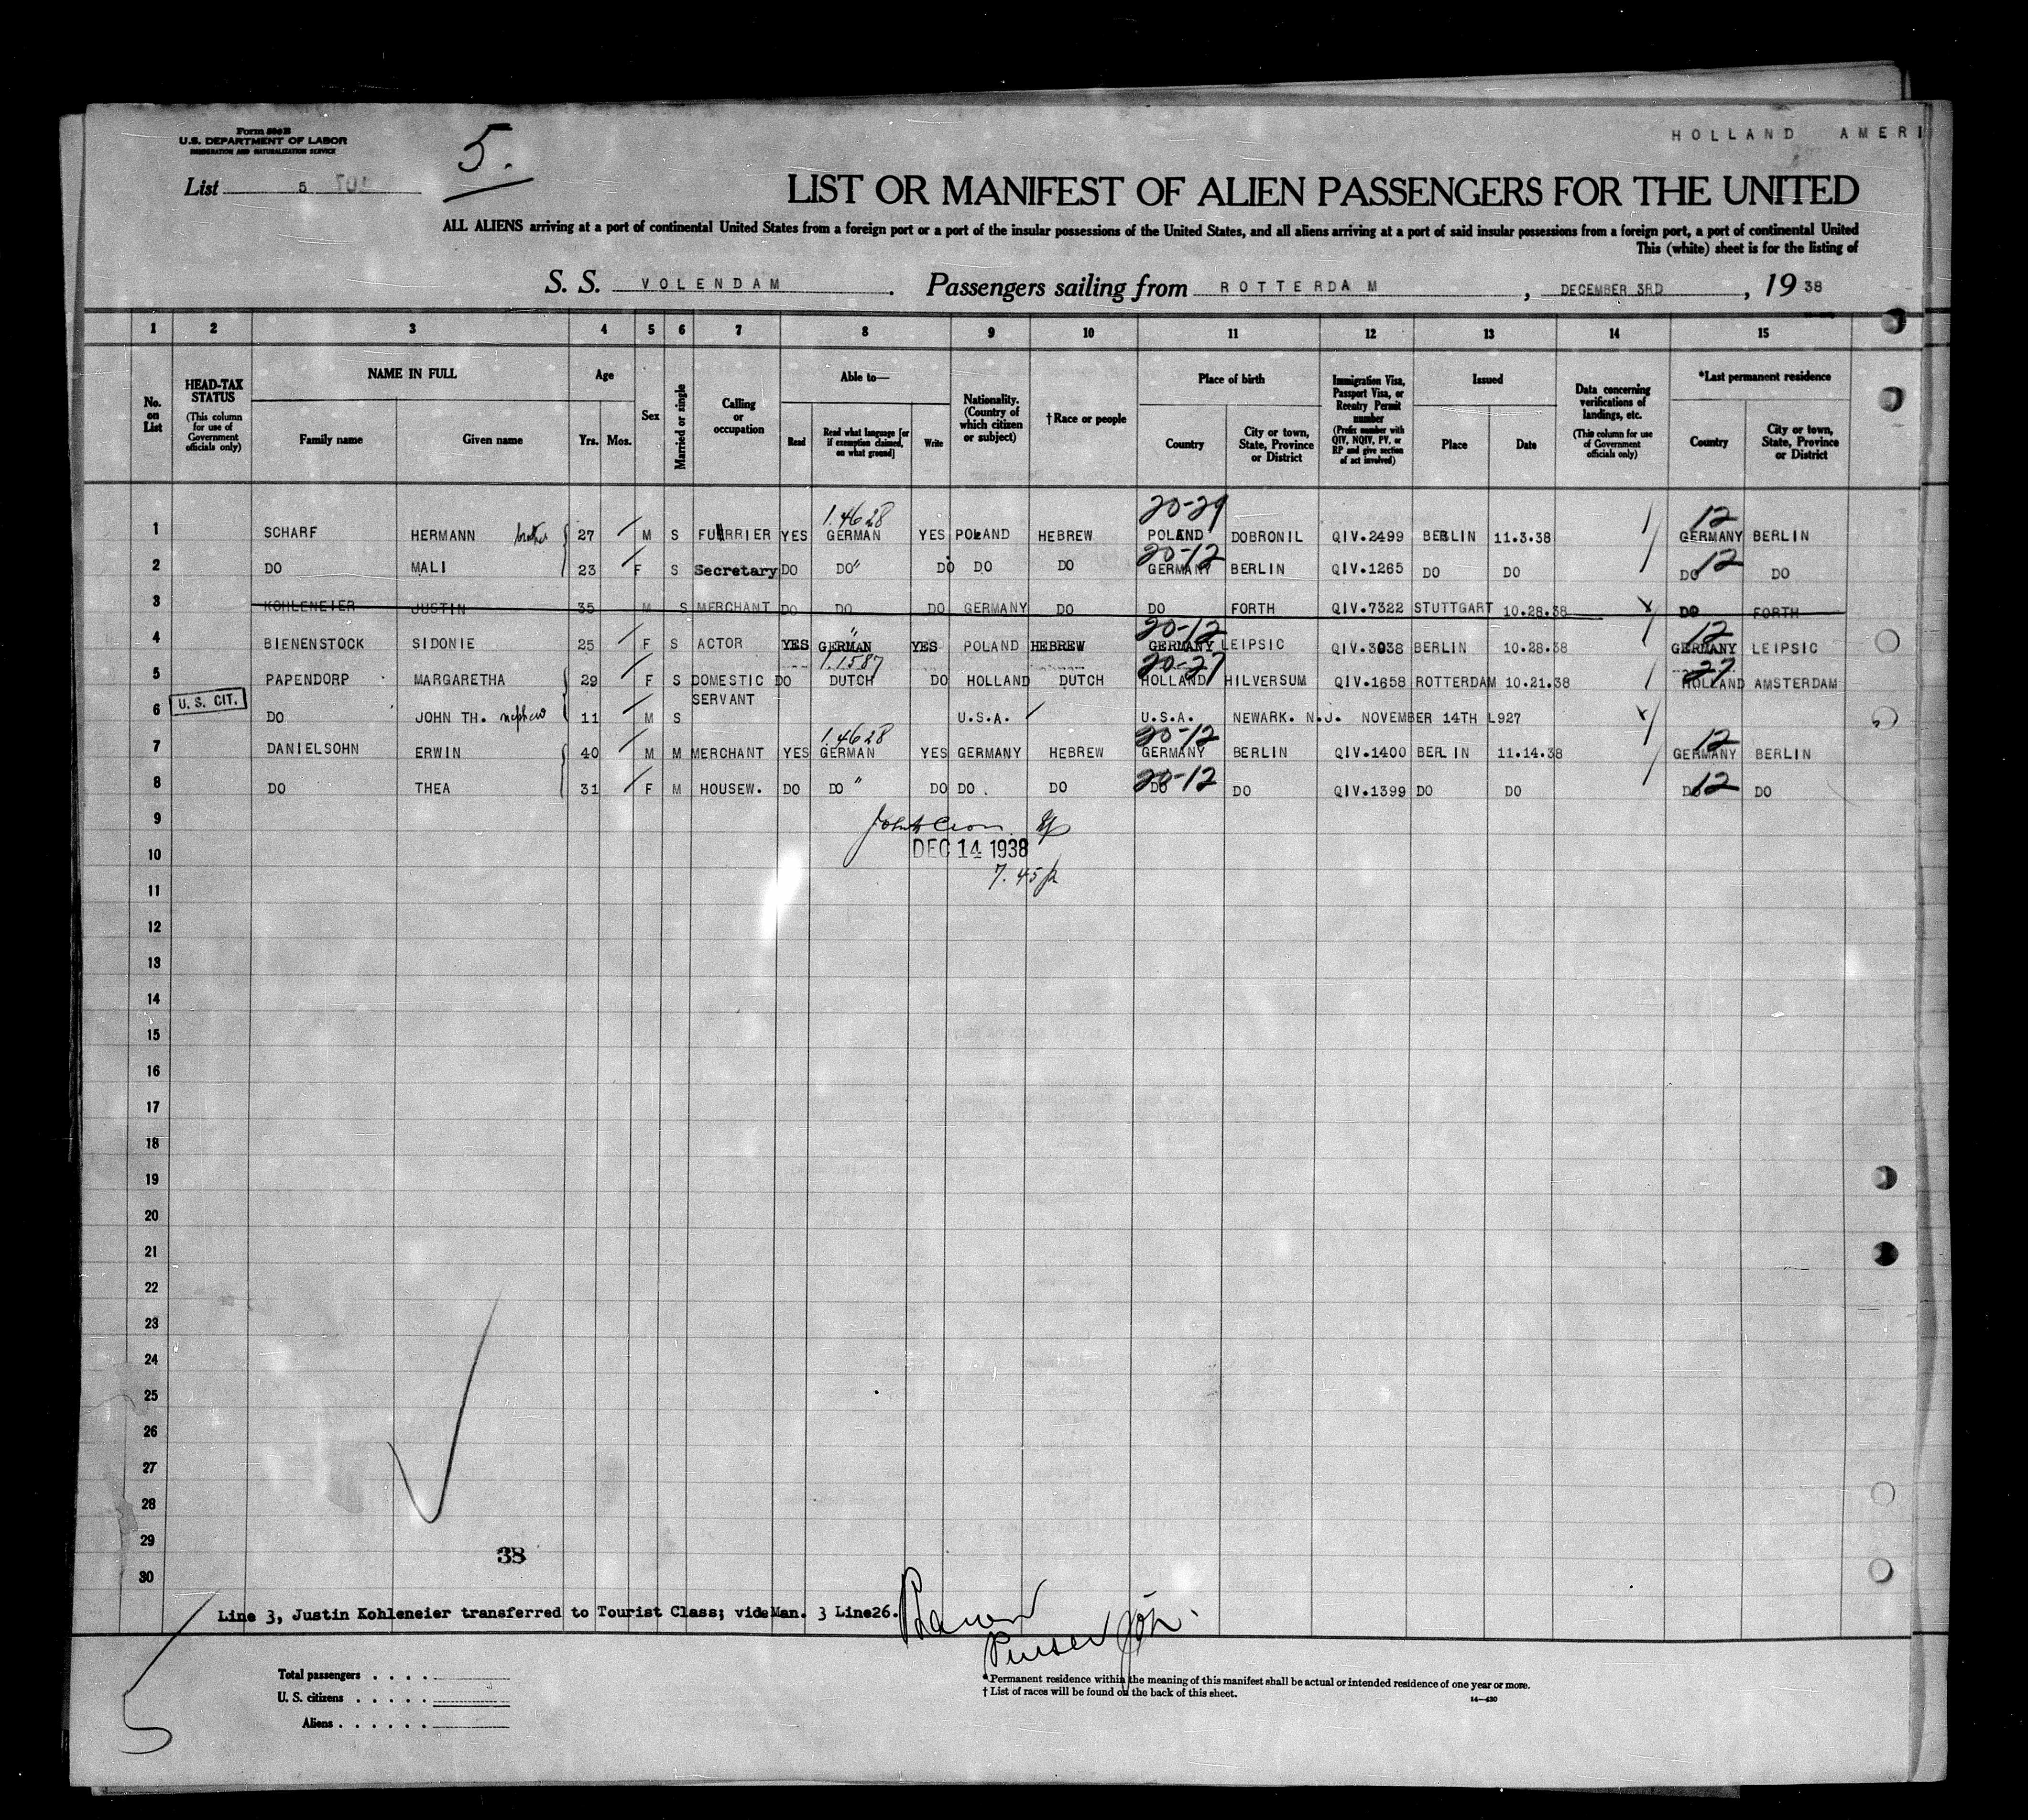 Form 500B
U.S. DEPARTMENT OF LABOR
IMMIGRATION AND NATURALIZATION SERVICE
5.
HOLLAND AMERI
List 5
LIST OR MANIFEST OF ALIEN PASSENGERS FOR THE UNITED
ALL ALIENS arriving at a port of continental United States from a foreign port or a port of the insular possessions of the United States, and all aliens arriving at a port of said insular possessions from a foreign port, a port of continental United
This (white) sheet is for the listing of
S. S. VOLENDAM . Passengers sailing from ROTTERDAM , DECEMBER 3RD , 19 38
1 2 3 4 5 6 7 8 9 10 11 12 13 14 15
No. on List
HEAD-TAX STATUS (This column for use of Government officials only)
NAME IN FULL
Family name Given name
Age
Yrs. Mos.
Sex
Married or single
Calling or occupation
Able to—
Read Read what language [or if exemption claimed, on what ground] Write
Nationality. (Country of which citizen or subject)
†Race or people
Place of birth
Country City or town, State, Province or District
Immigration Visa, Passport Visa, or Reentry Permit number (Prefix number with QIV, NQIV, PV, or RP and give section of act involved)
Issued
Place Date
Data concerning verifications of landings, etc. (This column for use of Government officials only)
*Last permanent residence
Country City or town, State, Province or District
1.4628 20-29 12
1 SCHARF HERMANN brother 27 M S FURRIER YES GERMAN YES POLAND HEBREW POLAND DOBRONIL QIV.2499 BERLIN 11.3.38 GERMANY BERLIN
20-12 12
2 DO MALI 23 F S Secretary DO DO" DO DO DO GERMANY BERLIN QIV.1265 DO DO DO DO
3 KOHLENEIER JUSTIN 35 M S MERCHANT DO DO DO GERMANY DO DO FORTH QIV.7322 STUTTGART 10.28.38 DO FORTH
" 20-12 12
4 BIENENSTOCK SIDONIE 25 F S ACTOR YES GERMAN YES POLAND HEBREW GERMANY LEIPSIC QIV.3038 BERLIN 10.28.38 GERMANY LEIPSIC
1.1587 20-27 27
5 PAPENDORP MARGARETHA 29 F S DOMESTIC SERVANT DO DUTCH DO HOLLAND DUTCH HOLLAND HILVERSUM QIV.1658 ROTTERDAM 10.21.38 HOLLAND AMSTERDAM
U.S. CIT.
6 DO JOHN TH. nephew 11 M S U.S.A. U.S.A. NEWARK. N.J. NOVEMBER 14TH L927
1.4628 20-12 12
7 DANIELSOHN ERWIN 40 M M MERCHANT YES GERMAN YES GERMANY HEBREW GERMANY BERLIN QIV.1400 BERLIN 11.14.38 GERMANY BERLIN
20-12 12
8 DO THEA 31 F M HOUSEW. DO DO " DO DO. DO DO DO QIV.1399 DO DO DO DO
9
10 DEC 14 1938
11 7.45 p
12
13
14
15
16
17
18
19
20
21
22
23
24
25
26
27
28
29
38
30
Line 3, Justin Kohleneier transferred to Tourist Class; vide Man. 3 Line26.
Purser
Total passengers . . . .
U. S. citizens . . . . .
Aliens . . . . . .
*Permanent residence within the meaning of this manifest shall be actual or intended residence of one year or more.
† List of races will be found on the back of this sheet.
14—430
5